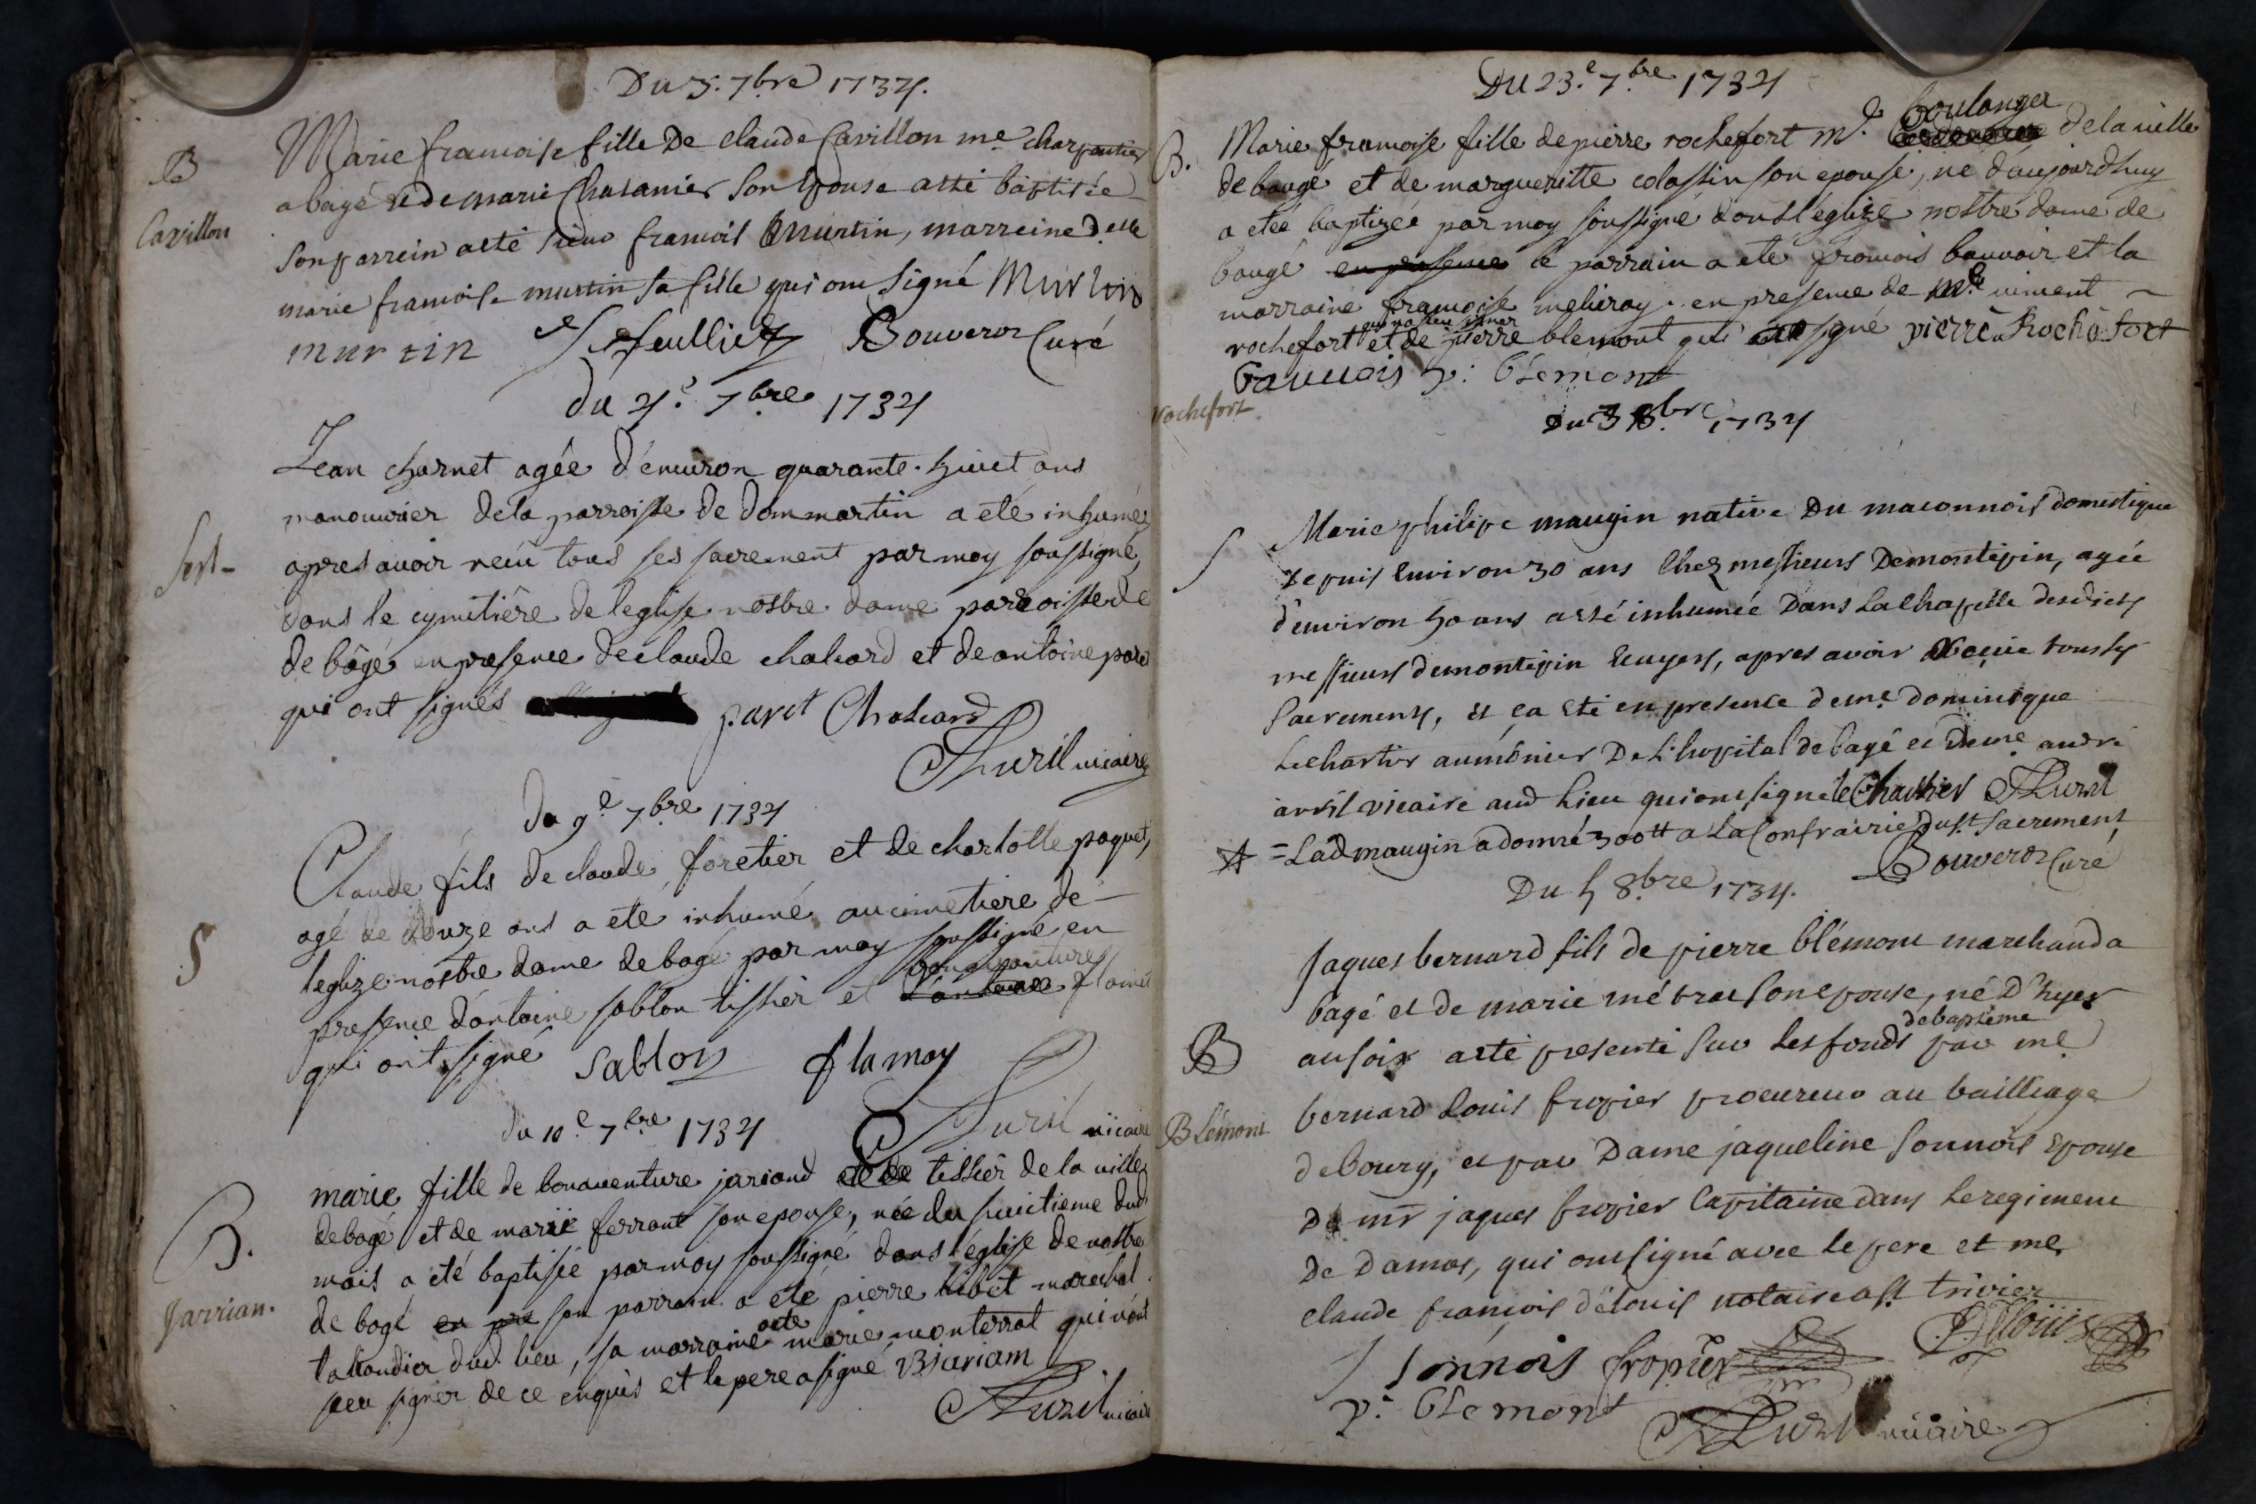 Du 3. 7bre 1734.
B
Cavillon
Marie francoise fille De claude Cavillon me. charpentier
a bagé et de marie Chasanier son Epouse a esté baptisée
son parrein a esté sieur francois Murtin, marreine d.elle
marie francoise murtin sa fille qui ont signé Murtin
murtin feulliet Bouveroz Curé
du 4e. 7bre 1734
Sert
Jean charnet agée d'environ quarante huict ans
manouvrier dela parroisse de dommartin a eté inhumé
apres avoir receu tous ses sacrement par moy soussigné
dans le cymitiére de leglise nostre dame parroisse de
de bâgé en presence de claude chaliard et de antoine paret
qui ont signés paret Chaliard
Auril vicaire
Du 9e 7bre 1734
S
Claude fils de claude foretier et de charlotte paquet,
agé de douze ans a eté inhumé au cimetiere de
leglize nostre dame de bagé par moy soussigné en
presence d'antoine sablon tissier et bonaventure flamet
qui ont signé Sablon flamay
Auril vicaire
du 10e 7bre 1734
B.
Jarrian.
marie fille de bonaventure jariand tissier de la ville
de bagé et de marie ferrant son epouse, née du huictieme dud
mois a été baptisée par moy soussigné dans l'église de nostre
de bagé en pre son parrain a eté pierre libet marechal
tallandier dud. lieu, sa marraine a eté marie monterrat qui n'ont
sceu signer de ce enquis et le pere a signé B jariam
Auril vicaire
Du 23.e 7.bre 1734
B.
rochefort
Marie francoise fille de pierre rochefort me. boulanger de la ville
de baugé et de margueritte colassin son epouse, ne d'aujourdhuy
a etée baptizée par moy soussigné dans l'églize nostre dame de
baugé en presence le parrain a eté francois bauvoir et la
marraine francoise en presence de me vincent
rochefort et de pierre blemont qui ont signé pierre Rochefort
Bauvois p: blémont
Du 3 8.bre 1734
S
Marie philipe maugin native Du maconnois domestique
Depuis Environ 30 ans Chez messieurs Demontépin, agée
d'environ 50 ans a esté inhumée Dans La Chapelle desdicts
messieurs demontépin Ecuyers, apres avoir receüe tous les
Sacrements, et ça Eté en presence de me. dominique
Lechartier aumônier De L'hopital de bagé et De me. andré
avril vicaire aud Lieu qui ont signé le Chartier AAuril
= La d maugin a donné 300tt a La Confrairie du st. Sacrement
Bouveroz Curé
Du 5 8.bre 1734.
B
Blémont
Jaques bernard fils de pierre blémont marchand a
bagé et de marie métrat son epouse, né D'hyer
au soir a esté presenté sur Les fonds de baptême par me
bernard Louis fropier procureur au bailliage
de bourg, et par Dame jaqueline Sonnois Epouse
De mr jaques fropier Capitaine dans Le regiment
De Damas, qui ont signé avec le pere et me
claude francois délouis notaire a st trivier
J Sonnois fropier Délouis
p: blemont AAuril vicaire